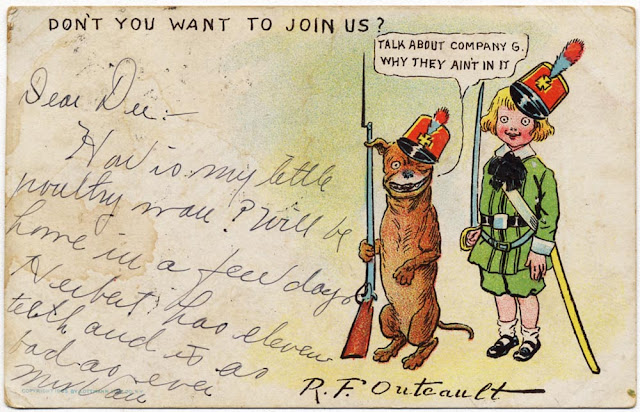 DON'T YOU WANT TO JOIN US?
TALK ABOUT COMPANY G.
WHY THEY AIN'T IN IT
Dear Dee:-
How is my little
poultry man? Will be
home in a few days
Herbert has eleven
teeth and is as
bad as ever
R.F. Outcault